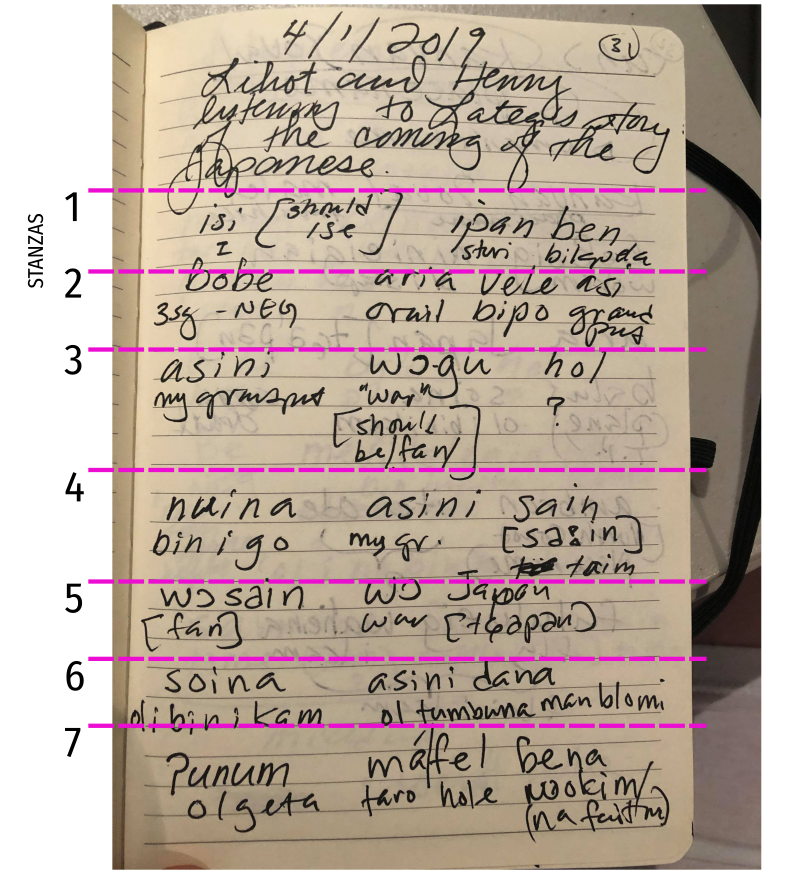 4/1/2019
31
Lihot and Henny
listening to Lategi's story
of the coming of the
Japanese.
STANZAS
1
isi [should ise] ipan ben
I sturi bilapda
2
bobe aria vele asi
3sg -NEG orait bipo grand pus
3
asini wɔ-gu hol
my grans "war" ?
[should be /fan/]
4
nuina asini sain
bin i go my gr. [saɪin]
taim
5
wɔ sain wɔ Japan
[fan] war
6
soina asini dana
ol i bin i kam ol tumbuna man blo mi
7
punum máfel bena
olgeta taro hole wokim/